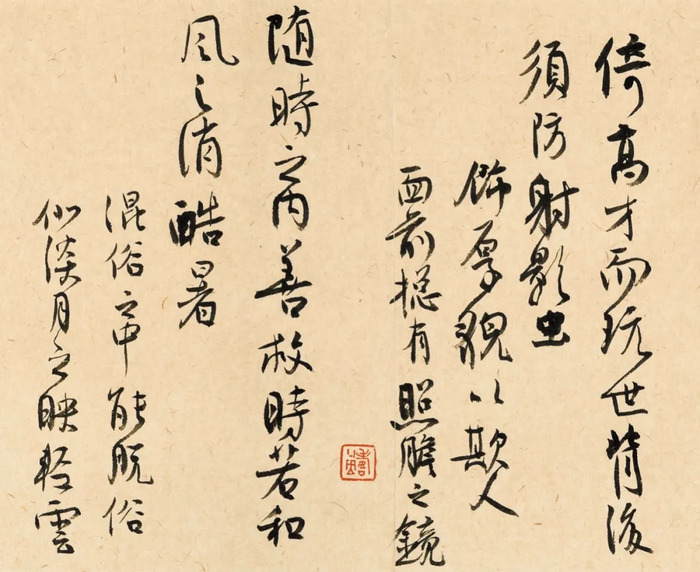 倚高才而玩世背後
須防射影虫
飾厚貌以欺人
面前揔有照膽之鏡
随時之内善救時若和
風之消酷暑
混俗之中能脱俗
似淡月之映軽雲